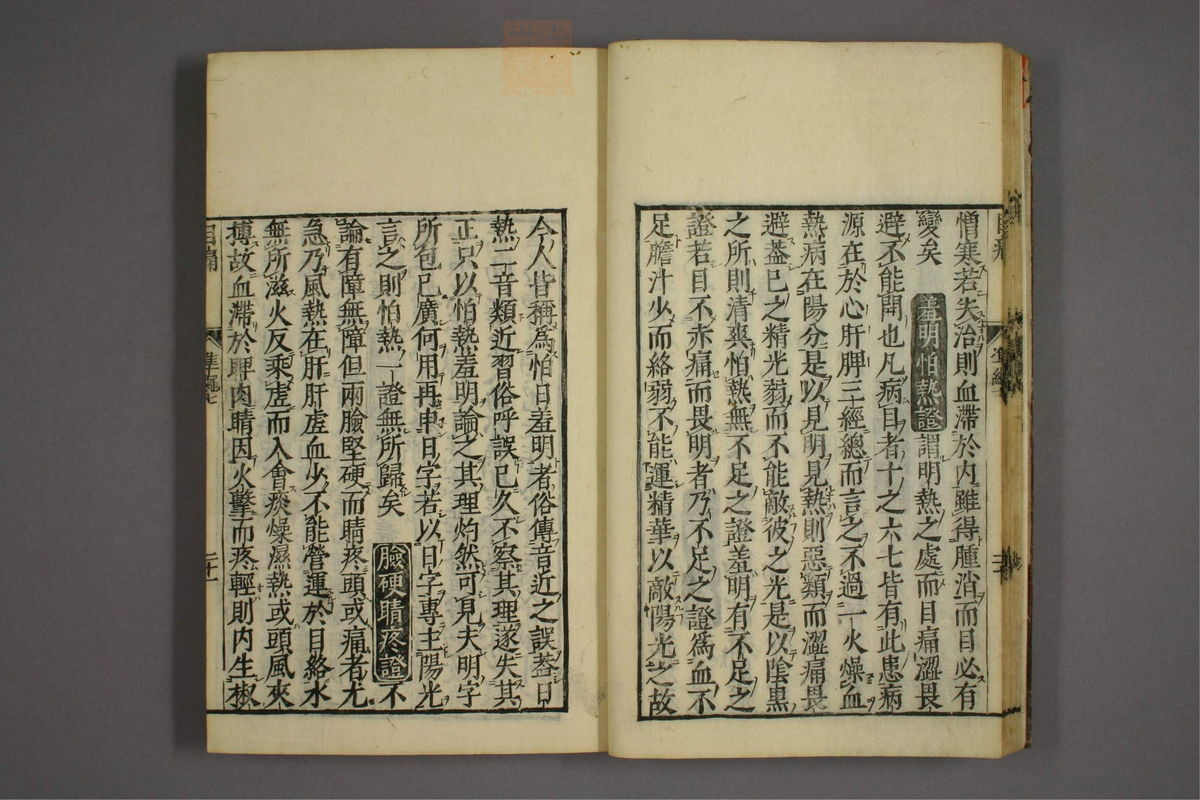 憎寒若失治則血滯於內雖得腫消而目必有
變矣 羞明怕熱證 謂明熱之處而目痛澀畏
避不能開也凡病目者十之六七皆有此患病
源在於心肝脾三經總而言之不過一火燥血
熱病在陽分是以見明見熱則惡類而澀痛畏
避葢己之精光弱而不能敵彼之光是以陰黑
之所則清爽怕熱無不足之證羞明有不足之
證若目不赤痛而畏明者乃不足之證爲血不
足膽汁少而絡弱不能運精華以敵陽光之故
今人皆稱爲怕日羞明者俗傳音近之誤葢日
熱二音類近習俗呼誤已久不察其理遂失其
正只以怕熱羞明論之其理灼然可見夫明字
所包已廣何用再申日字若以日字專主陽光
言之則怕熱一證無所歸矣 臉硬睛疼證 不
論有障無障但兩臉堅硬而睛疼頭或痛者尤
急乃風熱在肝肝虛血少不能營運於目絡水
無所滋火反乘虛而入會痰燥濕熱或頭風夾
搏故血滯於脾肉睛因火擊而疼輕則內生椒
目痛
準繩七
二十一